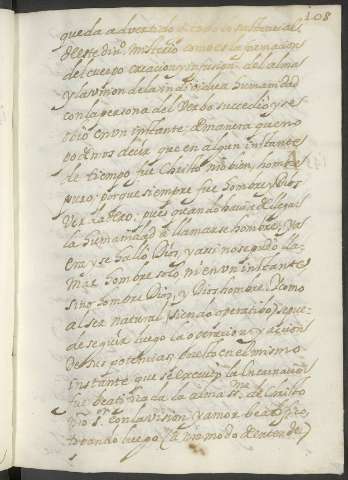 108
queda advertido todo lo sustancial
deste div.º misterio como es la formacion
del cuerpo creacion y infusion del alma
y la union de la individua humanidad
con la persona del Verbo succedio y se
obró en un instante; de manera que no
podemos decir que en algun instante
de tiempo fue Christo nro bien, hombre
puro; porque siempre fue hombre y Dios
verdadero: pues quando havia de llegar
la humanidad à llamarse hombre, ya
era y se halló Dios, y assi no se pudo lla-
mar hombre solo ni en un instante
sino hombre Dios, y Dios hombre. Y como
al ser natural (siendo operatibo) se pue-
de seguir luego la operacion y accion
de sus potencias; por esto en el mismo
instante que se executó la Encarnacion
fue beatificada la alma SS.ma de Christo
nro S.r con la vision y amor beatifico,
topando luego (à nro modo de entender)